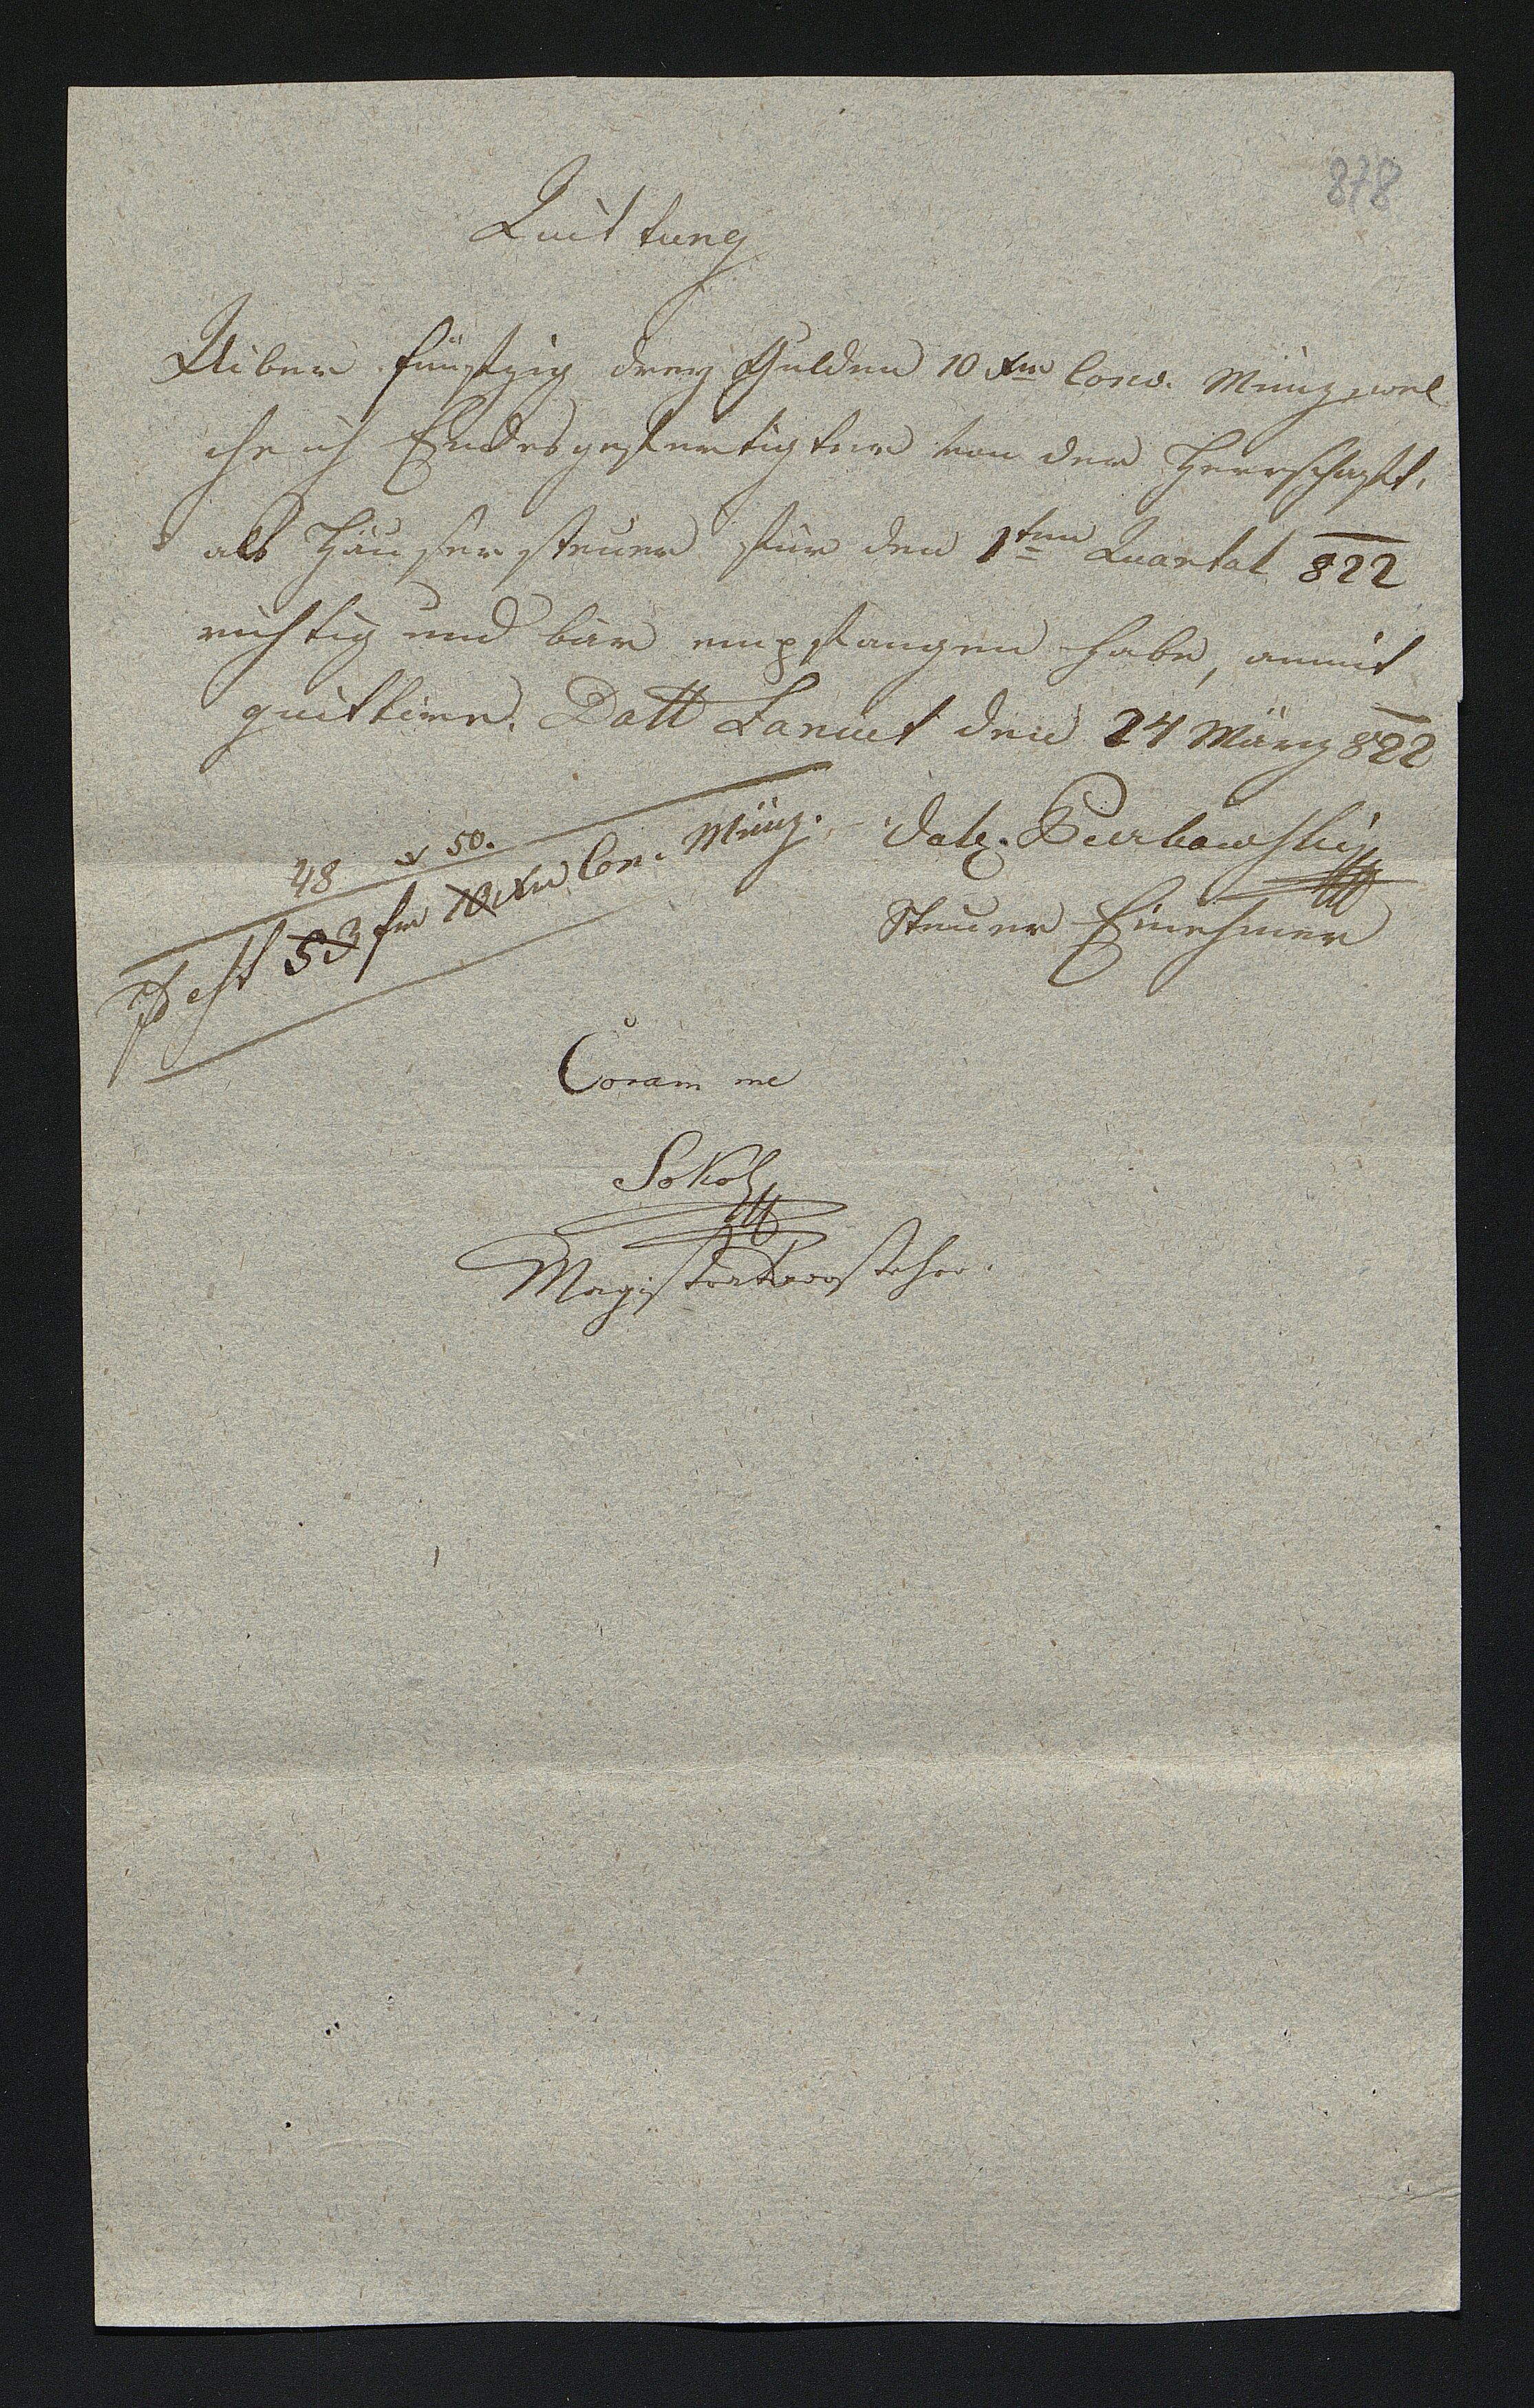 878
Quittung
Uiber fünfzig drey Gulden 10 Xrn Conv. Münz, wel
che ich Endesgefertigter von der Herrschaft.
als Häusersteuer für den 1ten Quartal 822
richtig und bar empfangen habe, anmit
quittire. Datt Lancut den 24 März 822
48 x 50.
Pest 53 fn 10 Xrn Con. Münz.
Steuer Einehmer
Coram me
Sokol
Magistratsvorsteher.